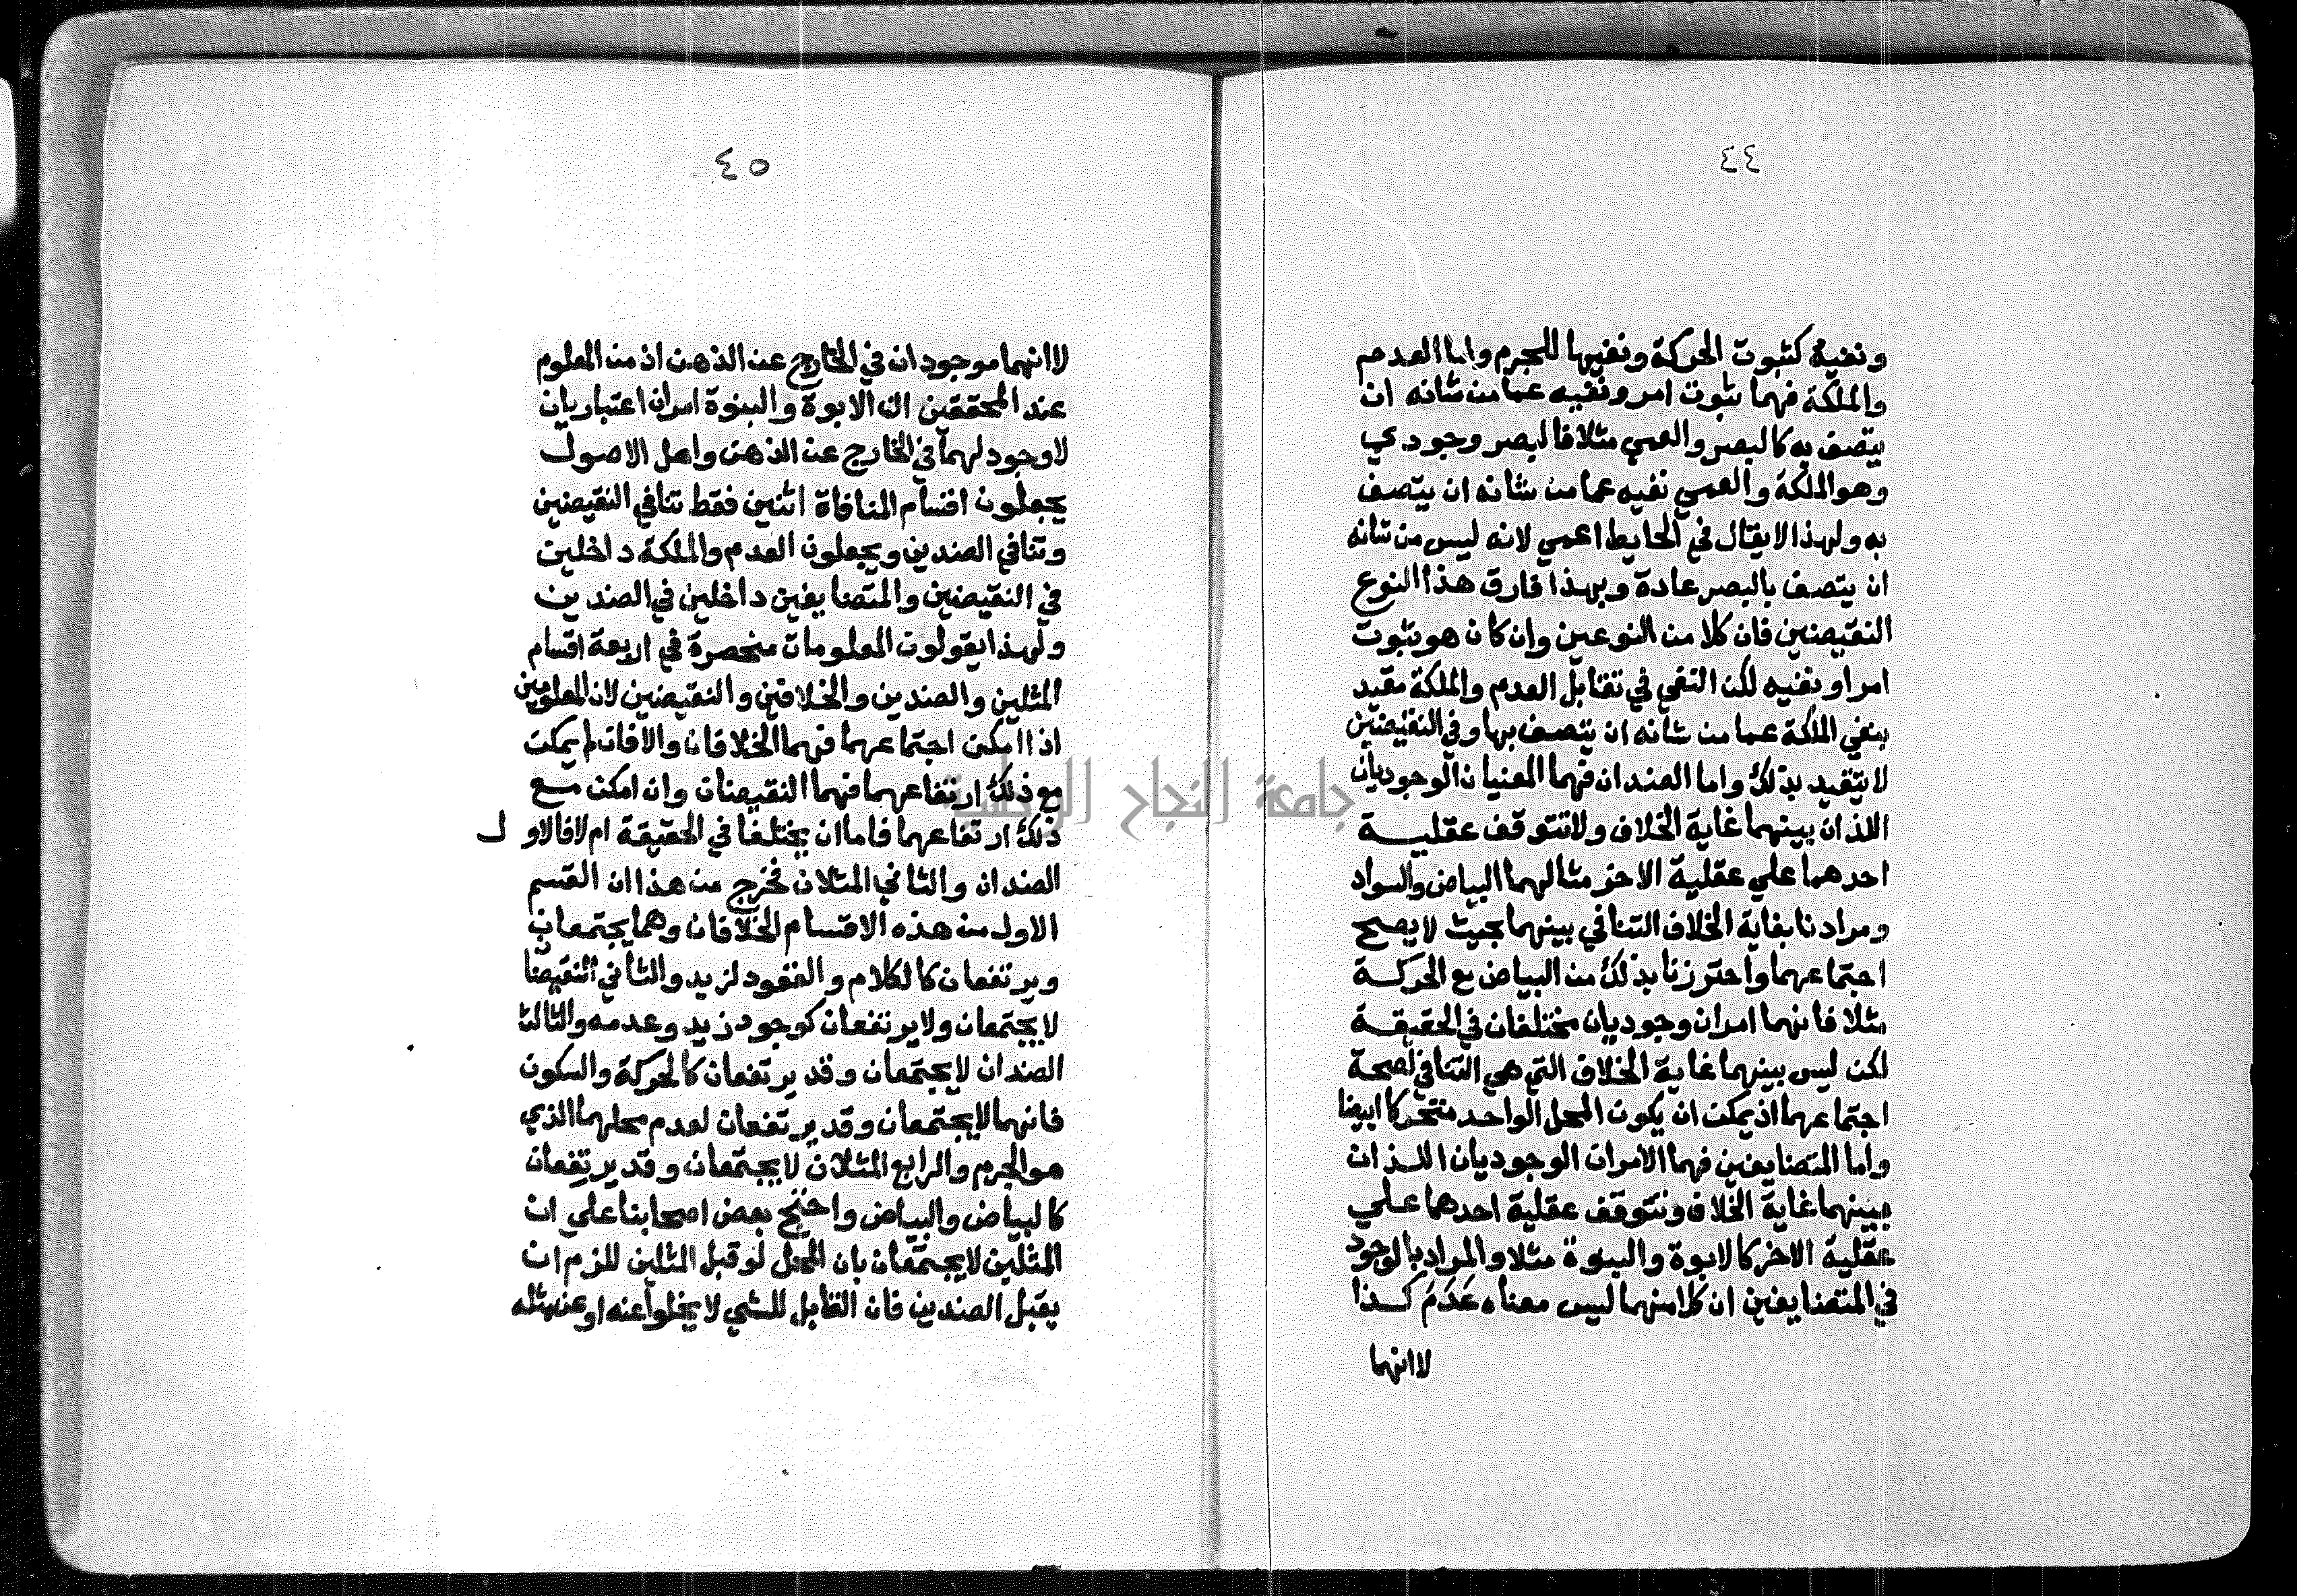 ٤٤
ونفيه كثبوت الحركة ونفيها للجرم واما العدم
والملكة فهما ثبوت امر ونفيه عما من شانه ان
يتصف به كالبصر والعمي مثلا فالبصر وجودي
وهو الملكة والعمي نفيه عما من شانه ان يتصف
به ولهذا لا يقال في الحايط اعمي لانه ليس من شانه
ان يتصف بالبصر عادة وبهذا فارق هذا النوع
النقيضين فان كلا من النوعين وان كان هو ثبوت
امر او نفيه لكن النفي في تقابل العدم والملكة مقيد
بنفي الملكة عما من شانه ان يتصف بها وفي النقيضين
لا يتقيد بذلك واما الضدان فهما المعنيان الوجوديان
اللذان بينهما غاية الخلاف ولا تتوقف عقلية
احدهما علي عقلية الاخر مثالهما البياض والسواد
ومرادنا بغاية الخلاف التنافي بينهما بحيث لا يصح
اجتماعهما واحترزنا بذلك من البياض مع الحركة
مثلا فانهما امران وجوديان مختلفان في الحقيقة
لكن ليس بينهما غاية الخلاف التي هي التنافي لصحة
اجتماعهما اذ يمكن ان يكون المحل الواحد متحركا ابيضا
واما المتضايفين فهما الامران الوجوديان اللذان
بينهما غاية الخلاف وتتوقف عقلية احدهما علي
عقلية الاخر كالابوة والبنوة مثلا والمراد بالوجود
في المتضايفين ان كلا منهما ليس معناه عَدَمَ كذا
لا انهما
٤٥
لا انهما موجودان في الخارج عن الذهن اذ من المعلوم
عند المحققين ان الابوة والبنوة امران اعتباريان
لا وجود لهما في الخارج عن الذهن واهل الاصول
يجعلون اقسام المنافاة اثنين فقط تنافي النقيضين
وتنافي الضدين ويجعلون العدم والملكة داخلين
في النقيضين والمتضايفين داخلين في الضدين
ولهذا يقولون المعلومات منحصرة في اربعة اقسام
المثلين والضدين والخلافين والنقيضين لان المعلومين
اذا امكن اجتماعهما فهما الخلافان والا فان لم يمكن
مع ذلك ارتفاعهما فهما النقيضان وان امكن مع
ذلك ارتفاعهما فاما ان يختلفا في الحقيقة ام لا فالاول
الضدان والثاني المثلان فخرج من هذا ان القسم
الاول من هذه الاقسام الخلافان وهما يجتمعان
ويرتفعان كالكلام والقعود لزيد والثاني النقيضا
لا يجتمعان ولا يرتفعان كوجود زيد وعدمه والثالث
الضدان لا يجتمعان وقد يرتفعان كالحركة والسكون
فانهما لا يجتمعان وقد يرتفعان لعدم محلهما الذي
هو الجرم والرابع المثلان لا يجتمعان وقد يرتفعان
كالبياض والبياض واحتج بعض اصحابنا علي ان
المثلين لا يجتمعان بان المحل لو قبل المثلين للزم ان
يقبل الضدين فان القابل للشي لا يخلوا عنه او عن مثله
جامعة النجاح الوطنية